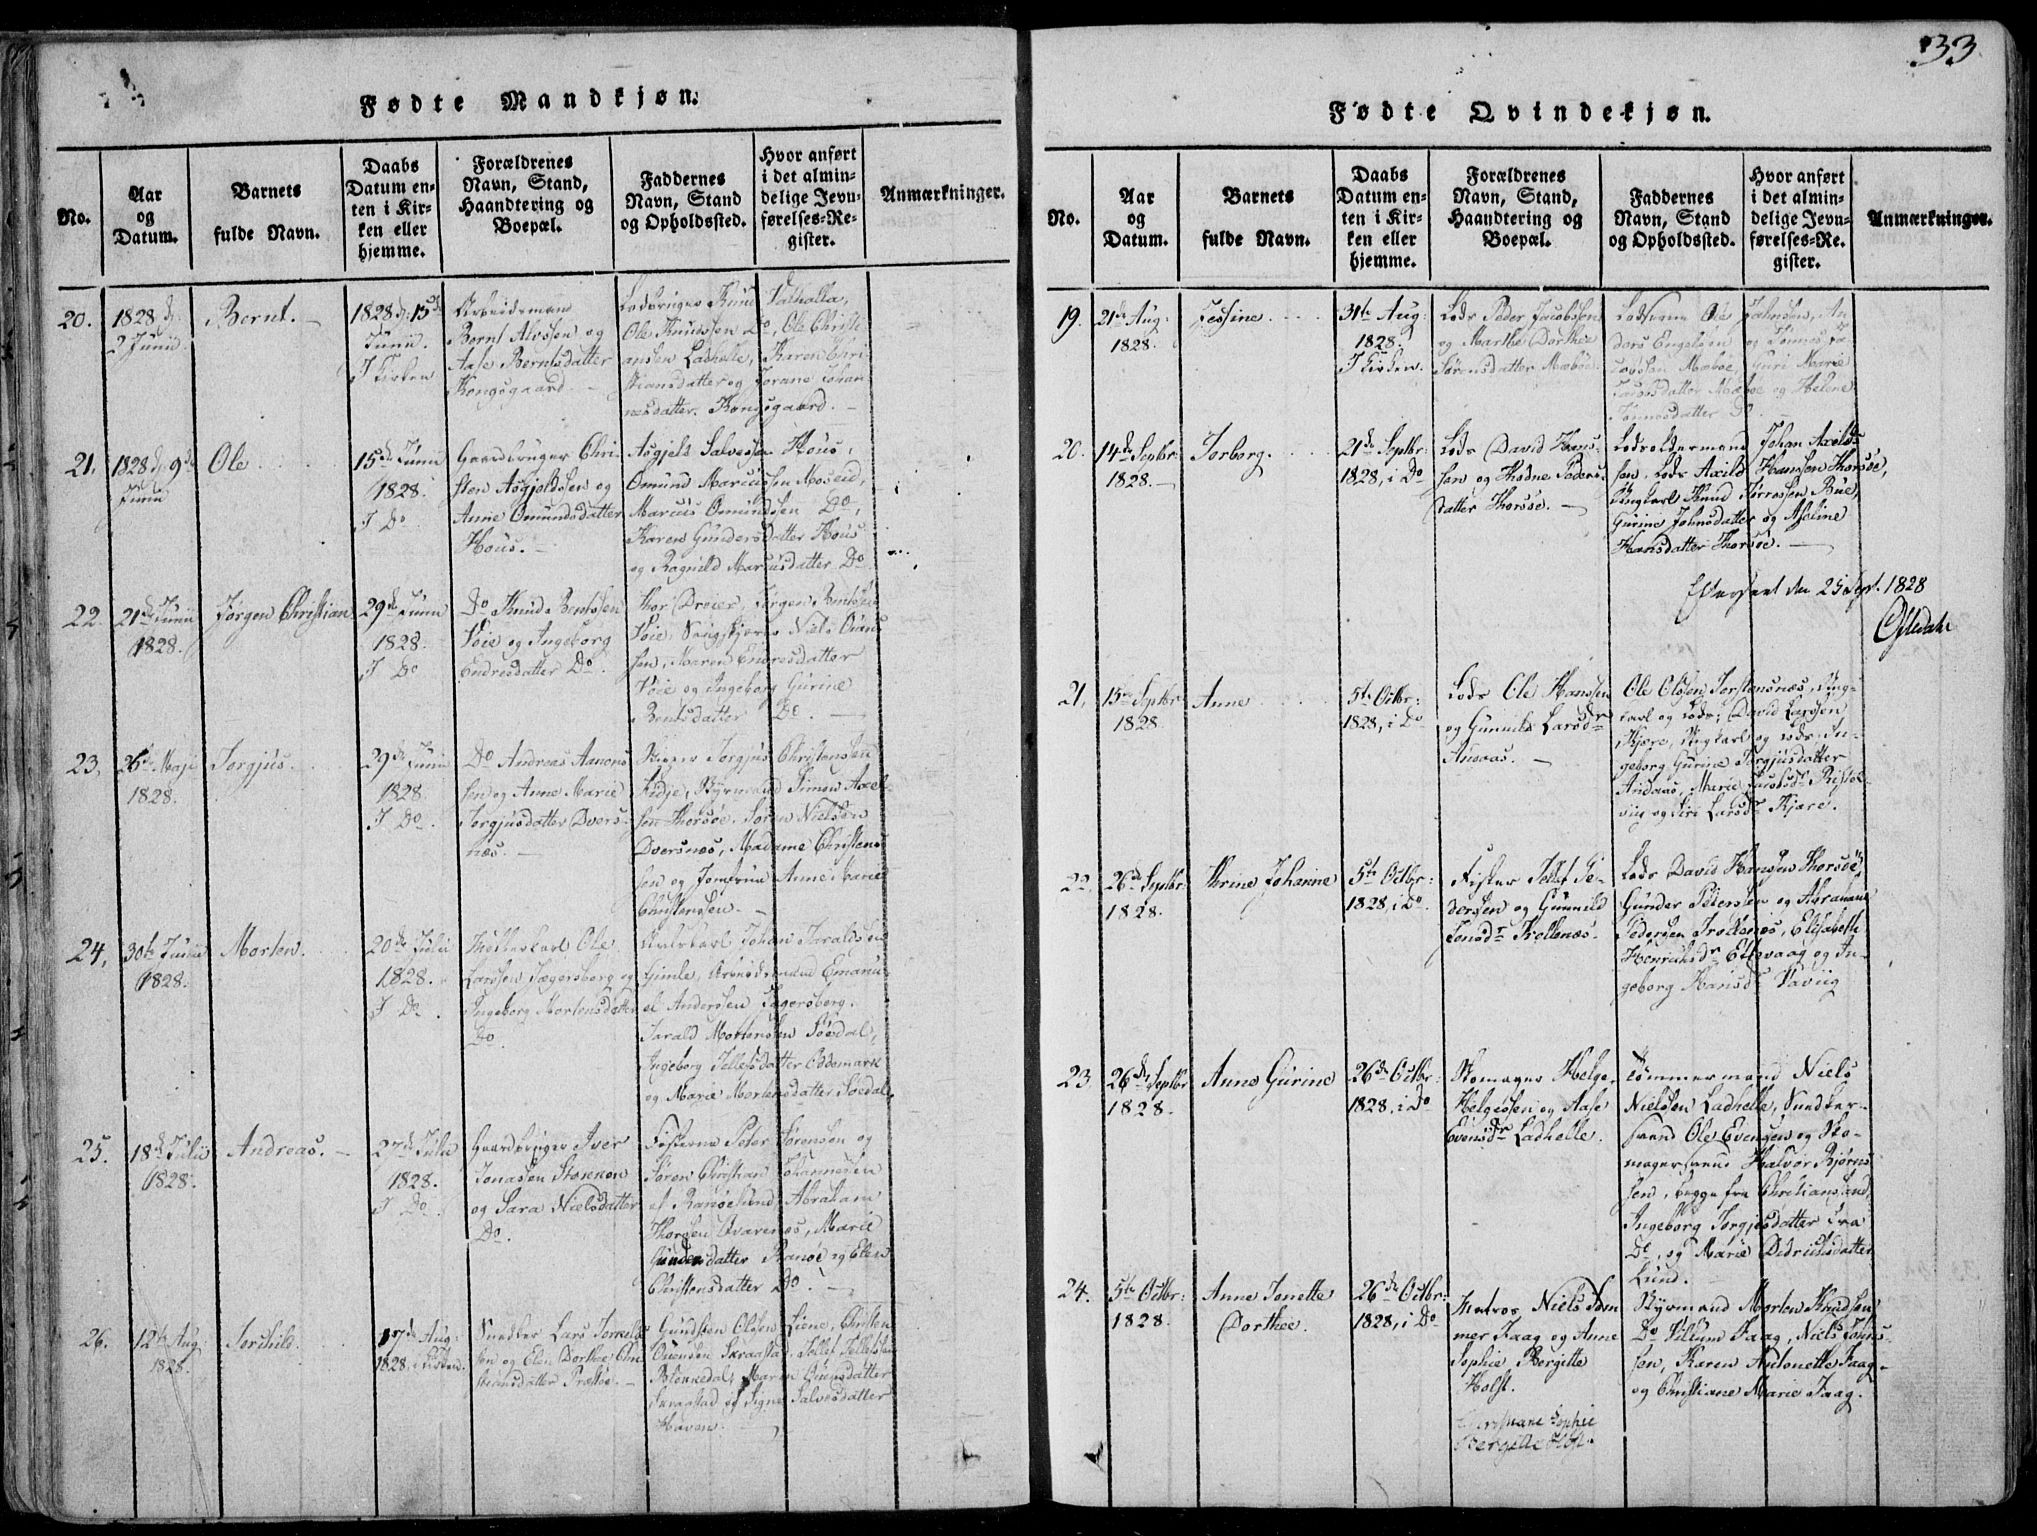 33
Fødte Mandkjøn.
No.
Aar
og
Datum.
Barnets
fulde Navn.
Daabs
Datum en-
ten i Kir-
ken eller
hjemme.
Forældrenes
Navn, Stand,
Haandtering og
Boepæl.
Faddernes
Navn, Stand
og Opholdssted.
Hvor anført
i det almin-
delige Jevn-
førelses-Re-
gister.
Anmærkninger.
20.
1828 d:
2 Junii
Bernt.
1828 d: 15de
Junii.
I Kirken
Arbeidsmand
Bernt Alvssen og
Aase Berntsdatter
Kongsgaard.
Ladbruger Rune Valhalla,
Ole Knudssen Do, Ole Christi-
ansen Ladhelle, Karen Chri-
stiansdatter og Jorane Johan-
nesdatter Kongsgaard.
21.
1828 d. 9de
Junii
Ole
15de Junii
1828.
I Do
Gaardbruger Chri-
sten Asgjeldssen og
Anne Omundsdatter
Hous.
Asgjels Salvessen Hous,
Omund Marcussen Moseid,
Marcus Omundsen Do,
Karen Gundersdatter Hous
og Ragnild Marcusdatter Do
22.
21de Junii
1828.
Jørgen Christian
29de Junii
1828.
I Do
Do Knud Bentssen
Vøie og Ingeborg
Endresdatter Do.
Thor Dreier, Jørgen Bentssen
Vøie, Niels
sen, Maren Endresdatter
Vøie og Ingeborg Gurine
Bentsdatter Do.
23.
26de Maji
1828.
Torgjus.
29de Junii
1828
I Do.
Do Andreas Aanons-
sen og Anne Marie
Torgjusdatter Dvers-
næs.
Torgjus Christensen
Kidje, Styrmand Simon Axel-
sen Thorsøe. Søren Nielsen
Dversnæs, Madame Christen-
sen og Jomfrue Anne Marie
Christensen.
24.
30te Junii
1828.
Morten.
20de Julii
1828.
I Do.
Ole
Larssen Jægersberg og
Ingeborg Mortensdatter
Do
Johan Taraldsen
Gimle, Arbeidsmand Emanu-
el Anderssen Jægersberg.
Tarald Mortenssen Søedal,
Ingeborg Tellefsdatter Oddemark
og Marie Mortensdatter Søedal.
25.
18de Julii
1828.
Andreas.
27de Julii
1828.
I Do
Gaardbruger Iver
Jonassen Stokken
og Sara Nielsdatter
Do.
Fiskerne Peter Sørensen og
Søren Christian Johannessen
af Randøesund, Abraham
Thorsen Qvarenæs, Marie
Gundersdatter Randøe og Elen
Christensdatter Do.
26.
12te Aug
1828
Torchild.
17de Aug:
1828, i Kirken.
Snedker Lars Torkelds-
sen og Elen Dorthee Chri-
stiansdatter Præstøe.
Gundsten Olssen Liene, Christen
Ouensen Skraastad, Tellef Tellefssen
Blekkedal, Maren Ouensdatter
Skraastad og Signe Salvesdatter
Haven.
Fødte Qvindekjøn.
No.
Aar
og
Datum.
Barnets
fulde Navn.
Daabs
Datum en-
ten i Kir-
ken eller
hjemme.
Forældrenes
Navn, Stand,
Haandtering og
Boepæl.
Faddernes
Navn, Stand
og Opholdssted.
Hvor anført
i det almin-
delige Jevn-
førelses-Re-
gister.
Anmærkninger.
19.
21de Aug:
1828.
Jessine.
31te Aug:
1828.
I Kirken.
Lods Peder Jacobssen
og Marthe Dorthea
Sørensdatter Mæbøe.
Ole Johnsen, An-
ders Engelsen og Tønnes Ja-
cobssen Mæbøe, Guri Marie
Jacobsdatter Mæbøe og Helene
Tønnesdatter Do
20.
14de Septbr:
1828.
Torborg.
21de Septbr:
1828, i Do
Lods David Hans-
sen og Thodne Peders-
datter Thorsøe.
Lodsoldermand Johan Axels-
sen, Lods Axild Hanssen Thorsøe,
Ungkarl Knud Børressen Bue,
Gurine Johnsdatter og Aseline
Hansdatter Thorsøe.
Efterseet den 25 Sept. 1828
Oftedahl
21.
15de Septbr:
1828.
Anne
5te Octbr:
1828, i Do
Lods Ole Hanssen
og Gunnild Larsdr
Andaas.
Ole Olssen Torstensnæs, Ung-
karl og Lods; David Larssen
Kjære, Ungkarl og Lods. In-
geborg Gurine Torgjusdatter
Andaas, Marie Jacobsdr Ristøl-
viig og Siri Larsdr Kjære.
22.
26de Septbr:
1828.
Thrine Johanne
5te Octbr:
1828, i Do
Fisker Tellef Pe-
dersen og Gunnild
Jensdr Trollenæs.
Lods David Hanssen Thorsøe,
Gunder Peterssen og Abraham
Pedersen Trollenæs, Elisabeth
Henrichsdr Ettevaag og In-
geborg Hansdr Vaviig
23
26de Septbr
1828.
Anne Gurine
26de Octbr:
1828, i Do
Skomager Helge
Helgessen og Aase
Evensdr Ladhelle.
Tømmermand Niels
Nielssen Ladhelle, Snedker-
svend Ole Evensen og Sko-
magersvend Halvor Bjørns-
sen, begge fra Christianssand,
Ingeborg Torgjesdatter fra
Do, og Marie Didrichsdatter
Lund.
24.
5te Octbr:
1828.
Anne Jonette
Dorthee.
26de Octbr:
1828, i Do
Matros Niels Tøm-
mer Faag og Anne
Sophie Bergitte
Holst.
Christiane Sophie
Bergitte Holst.
Styrmand Morten Knudsen,
Do Villum Faag, Niels Johns-
sen, Karen Antonette Faag
og Christiane Marie Faag.